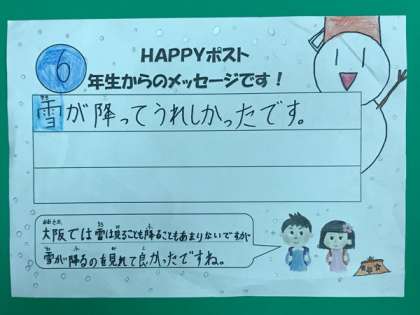 HAPPYポスト
6年生からのメッセージです！
雪が降ってうれしかったです。
大阪では雪は見ることも降ることもあまりないですが
雪が降るのを見れて良かったですね。